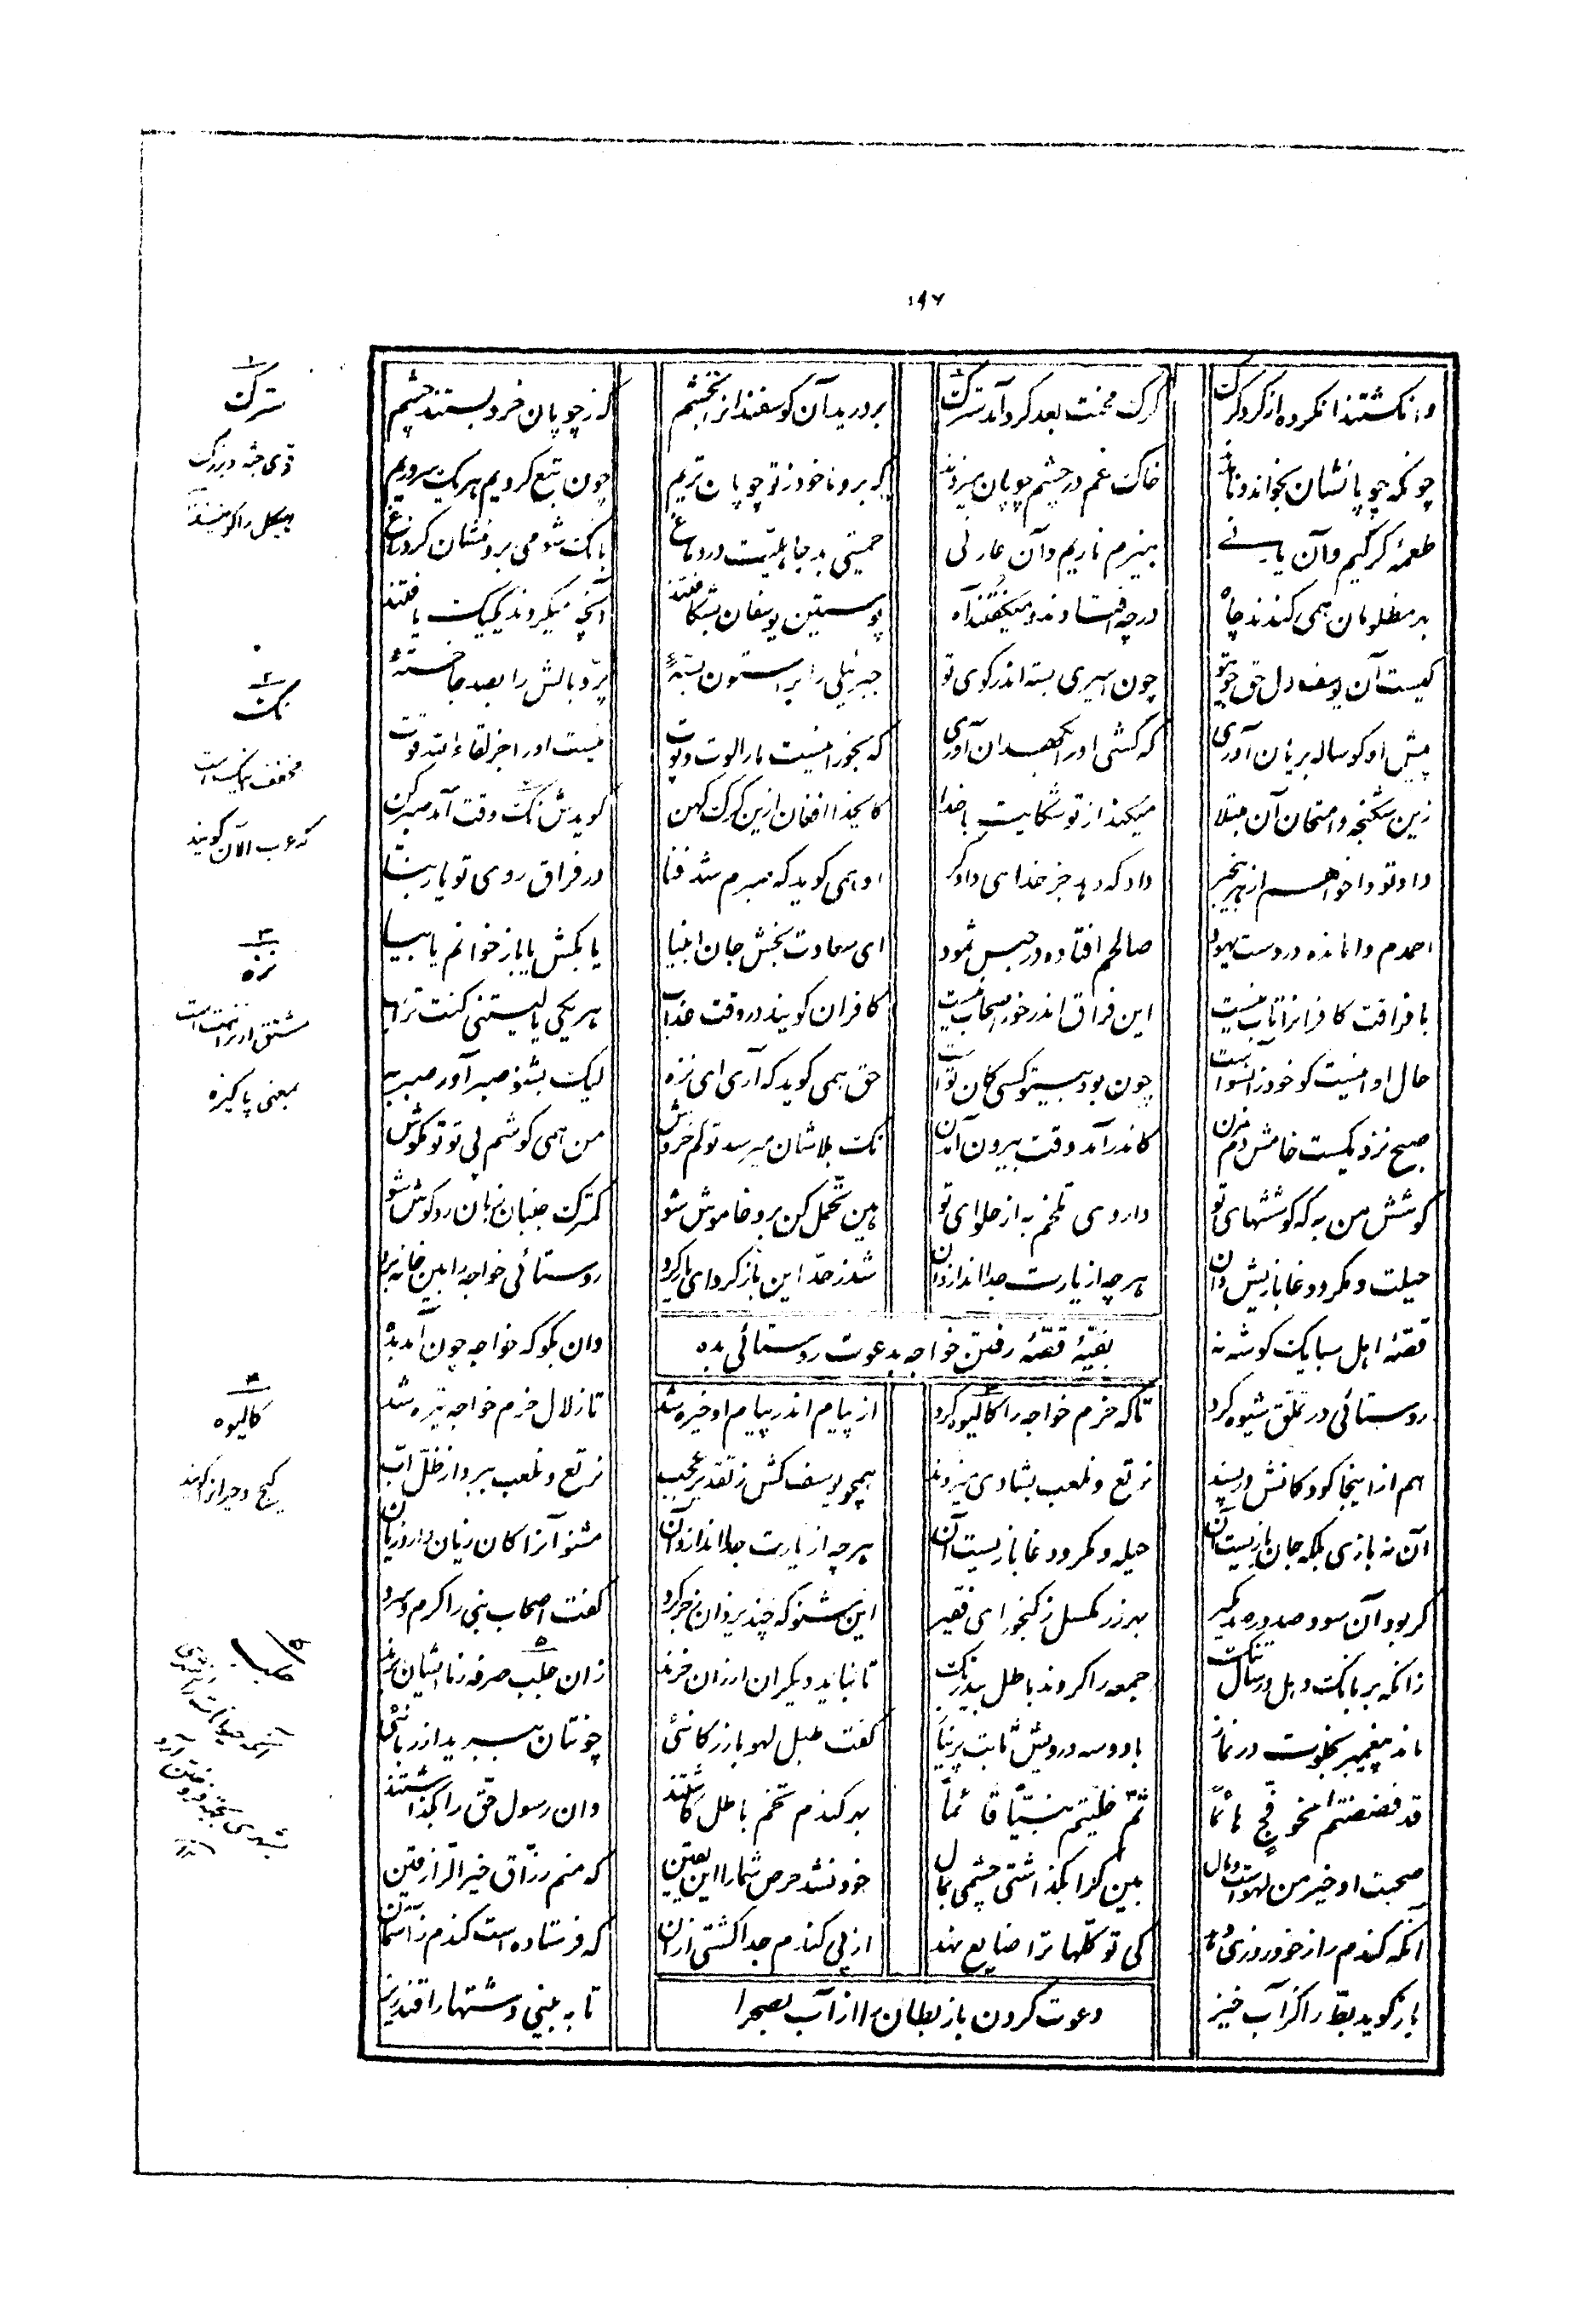 وانکشتند انکروه از کرد کرک کرک محنت بعد کرد آمد سترک بر درید آن کوسفندانرا بخشم که ز چوپان خرد بستند چشم
چونکه چوپانشان بخواند و نامدند خاک غم در چشم چوپان میزدند که برو ما خود ز تو چوپان تریم چون تبع کردیم هر یک سروریم
طعمهٔ کرکیم و آن یار نی هیزم ناریم و آن عار نی حمیتی بد جاهلیت در دماغ بانک شومی بر دمنشان کرد زاغ
بهر مظلومان همی کندند چاه در چه افتادند و میکفتند آه پوستین یوسفان بشکافتند آنچه میکردند یکیک یافتند
کیست آن یوسف دل حق جوی تو چون اسیری بسته اندر کوی تو جبرئیلی را بر استون بستهٔ پرّ و بالش را بصد جا خستهٔ
پیش او کوساله بریان آوری که کشی او را بکهدان آوری که بخور اینست ما را لوت و پوت نیست او را جز لقاء الله قوت
زین شکنجه و امتحان آن مبتلا میکند از تو شکایت با خدا کایخدا افغان ازین کرک کهن کویدش نک وقت آمد صبر کن
داد تو واخواهم از هر بیخبر داد که دهد جز خدای دادکر او همی کوید که صبرم شد فنا در فراق روی تو یا ربنا
احمدم وامانده در دست یهود صالحم افتاده در حبس ثمود ای سعادت بخش جان انبیا یا بکش یا باز خوانم یا بیا
با فراقت کافرانرا تاب نیست این فراق اندر خور اصحاب نیست کافران کویند در وقت عذاب هر یکی یا لیتنی کنت تراب
حال او اینست کو خود زانسو است چون بود بیتو کسی کان تو است حق همی کوید که آری ای نزه لیک بشنو صبر آور صبر به
صبح نزدیکست خامش دم مزن کاندر آمد وقت بیرون آمدن نک بلاشان میرسد تو کم خروش من همی کوشم پی تو تو مکوش
کوشش من به که کوششهای تو داروی تلخم به از حلوای تو هین تحمّل کن برو خاموش شو کمترک جنبان زبان رو کوش شو
حیلت و مکر و دغا بازیش دان هر چه از یارت جدا اندازد آن شد ز حدّ این باز کرد ای یار کرد روستائی خواجه را بین خانه برد
قصّهٔ اهل سبا یک کوشه نه بقیّهٔ قصّهٔ رفتن خواجه بدعوت روستائی بده وان بکو که خواجه چون آمد بده
روستائی در تملّق شیوه کرد تا که حزم خواجه را کالیوه کرد از پیام اندر پیام او خیره شد تا زلال حزم خواجه تیره شد
هم از اینجا کودکانش در پسند نرتع و نلعب بشادی میزدند همچو یوسف کش ز تقدیر عجیب نرتع و نلعب ببرد از ظلّ اب
آن نه بازی بلکه جان بازیست آن حیله و مکر و دغا بازیست آن هر چه از یارت جدا اندازد آن مشنو آنرا کان زیان دارد زیان
کر بود آن سود صد در صد مکیر بهر زر مکسل ز کنجور ای فقیر این شنو که چند یزدان زجر کرد کفت اصحاب نبی را کرم و سرد
زانکه بر بانک دهل در سال تنک جمعه را کردند باطل بیدرنک تا نباید دیکران ارزان خرند زان جلب صرفه ز ما ایشان برند
ماند پیغمبر بخلوت در نماز با دو سه درویش ثابت پر نیاز کفت طبل لهو بازرکانئی چونتان ببرید از ربانئی
قد فضضتم نحو قمح هائماً ثمّ خلیتم نبیّاً قائماً بهر کندم تخم باطل کاشتند وان رسول حقّ را بکذاشتند
صحبت او خیر من لهو است و مال بین کرا بکذاشتی چشمی بمال خود نشد حرص شما را این یقین که منم رزّاق خیر الرازقین
آنکه کندم را ز خود روزی دهد کی توکّلهات را ضایع نهد از پی کندم جدا کشتی ازان که فرستاده است کندم ز آسمان
باز کوید بطّ را کز آب خیز دعوت کردن باز بطان را از آب بصحرا تا به بینی دشتها را قندریز
۱
سترک
قوی جثه و بزرک
هیکل را کویند
۲
نک
مخفف اینکست
که عرب الآن کویند
۳
نزه
مشتق از نزاهت است
بمعنی پاکیزه
۴
کالیوه
کیج و حیرانرا کویند
۵
جلب